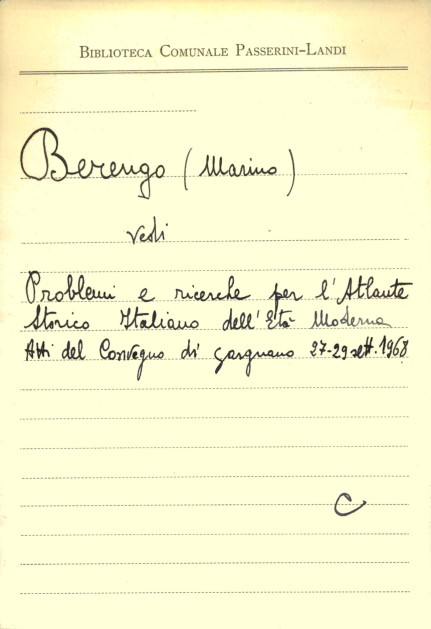 BIBLIOTECA COMUNALE PASSERINI-LANDI
Berengo (Marino)
vedi
Problemi e ricerche per l'Atlante
Storico Italiano dell'Età Moderna
Atti del Convegno di Gargnano 27-29 sett. 1968
C